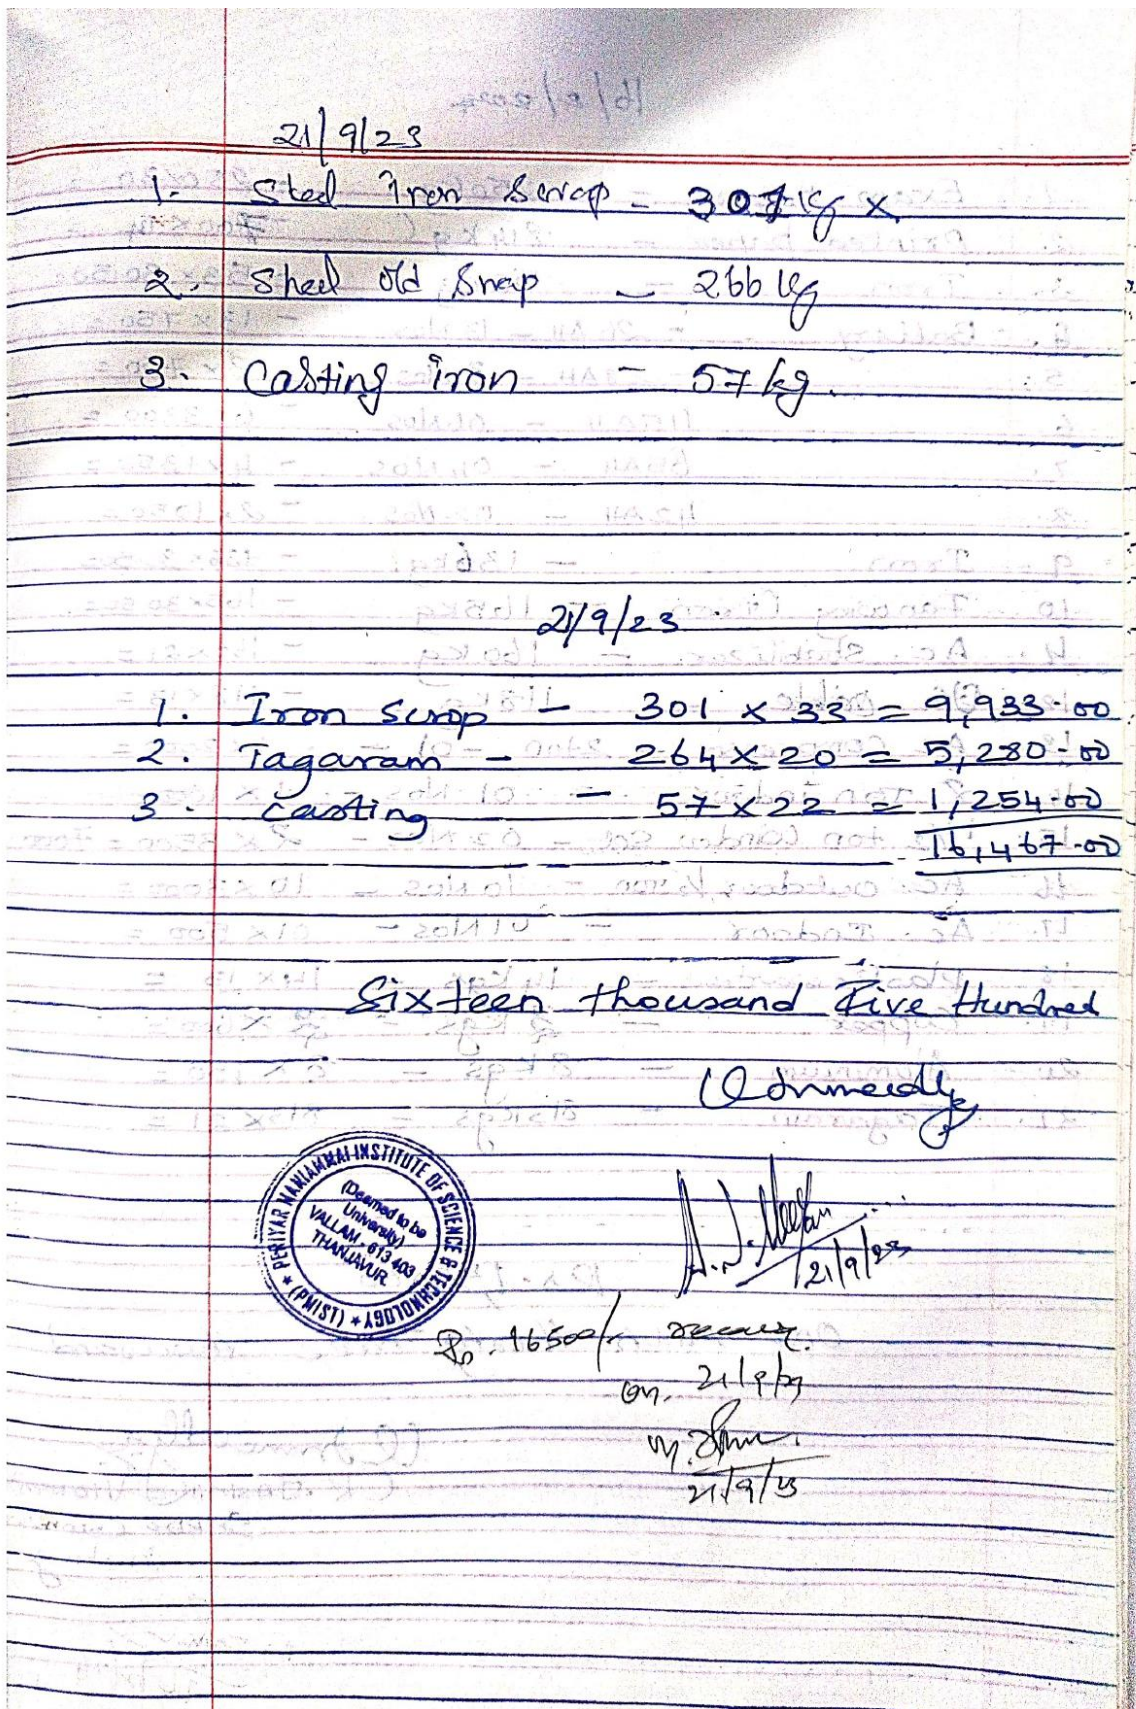 21/9/23
1. Steel Iron Scrap - 301 Kg x
2. Sheel old Srap - 266 kg
3. Casting iron - 57 kg.
21/9/23
1. Iron Scrop - 301 x 33 = 9,933.00
2. Tagaram - 264 x 20 = 5,280-00
3. casting - 57 x 22 = 1,254-00
16,467-00
Sixteen thousand Five Hundred
PERIYAR MANIAMMAI INSTITUTE OF SCIENCE & TECHNOLOGY
* (PMIST) *
(Deemed to be
University)
VALLAM - 613 403
THANJAVUR.
21/9/23
Rs. 16500/-
on. 21/9/23
21/9/23